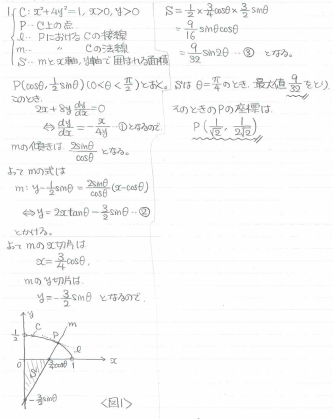 1.
C : x²+4y²=1, x>0, y>0
P … C上の点
l … PにおけるCの接線
m … 〃 Cの法線
S … mとx軸, y軸で囲まれる面積
P(cosθ, 1/2 sinθ) (0<θ<π/2) とおく。
このとき,
2x+8y dy/dx=0
⇔ dy/dx = -x/4y …① となるので
mの傾きは 2sinθ/cosθ となる。
よって mの式は
m: y-1/2 sinθ = 2sinθ/cosθ (x-cosθ)
⇔ y=2xtanθ-3/2 sinθ …②
とかける。
よって mのx切片は
x=3/4 cosθ,
mのy切片は
y=-3/2 sinθ となるので,
y
C
m
1/2
P
l
0
S
3/4 cosθ
1
x
-3/2 sinθ
<図1>
S=1/2×3/4 cosθ×3/2 sinθ
=9/16 sinθcosθ
=9/32 sin2θ …③ となる。
Sは θ=π/4 のとき, 最大値 9/32 をとり,
そのときのPの座標は,
P(1/√2, 1/2√2)